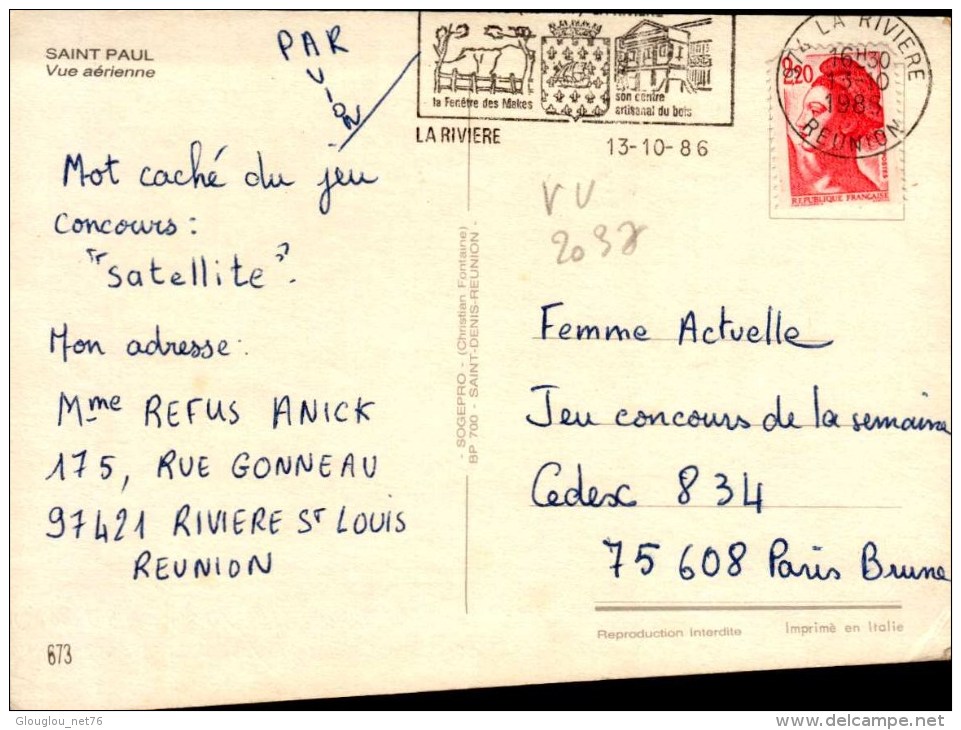 SAINT PAUL
Vue aérienne
PAR
AVION
la Fenêtre des Makes
son centre
artisanal du bois
LA RIVIERE
13-10-86
LA RIVIERE
16H30
13-10
198
REUNION
2,20
POSTES
REPUBLIQUE FRANÇAISE
Mot caché du jeu
concours :
"satellite".
Mon adresse :
Mme REFUS ANICK
175, RUE GONNEAU
97421 RIVIERE ST LOUIS
REUNION
673
- SOGEPRO - (Christian Fontaine)
BP 700 - SAINT-DENIS-REUNION -
VU
Femme Actuelle
Jeu concours de la semaine
Cedex 834
75608 Paris Brune
Reproduction Interdite
Imprimé en Italie
Glouglou_net76
delcampe.net